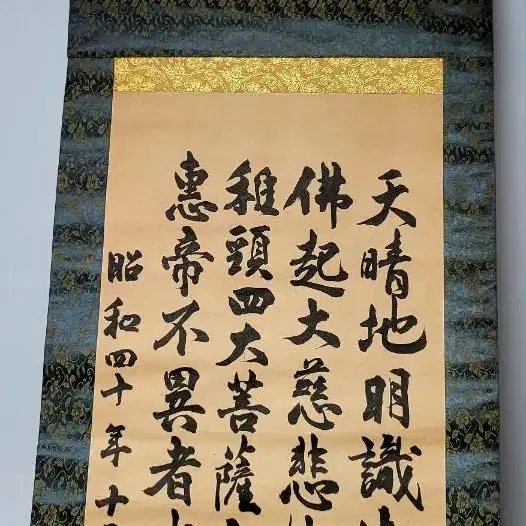 天晴地明識
佛起大慈悲
稚頸四大菩薩
惠帝不異者
昭和四十年十